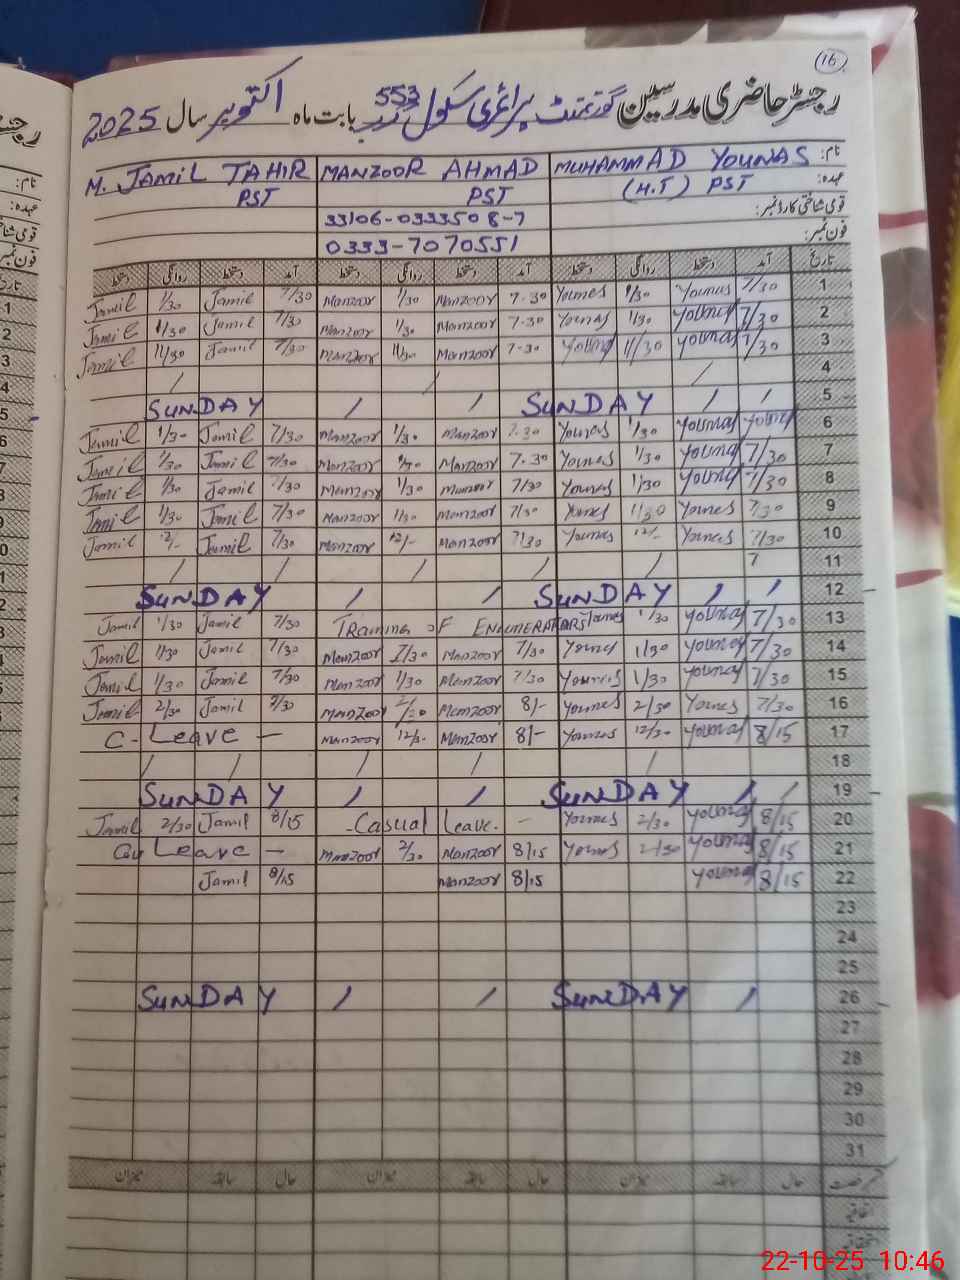 16
رجسٹر حاضری مدرسین گورنمنٹ پرائمری سکول 553 گ ب بابت ماہ اکتوبر سال 2025
نام: MUHAMMAD YOUNAS MANZOOR AHMAD M. JAMIL TAHIR
عہدہ: (H.T) PST PST PST
قومی شناختی کارڈ نمبر: 33106-0333508-7
فون نمبر: 0333-7070551
تاریخ آمد دستخط روانگی دستخط آمد دستخط روانگی دستخط آمد دستخط روانگی دستخط
Jamil 1/30 Jamil 7/30 Manzoor 1/30 Manzoor 7-30 Younes 1/30 Younus 7/30 1
Jamil 1/30 Jamil 7/30 Manzoor 1/30 Manzoor 7-30 Younas 1/30 Younas 7/30 2
Jamil 11/30 Jamil 7/30 Manzoor 11/30 Manzoor 7-30 Younas 11/30 Younas 7/30 3
/ / / 4
SUNDAY / / SUNDAY / / 5
Jamil 1/30 Jamil 7/30 Manzoor 1/30 Manzoor 7.30 Younas 1/30 Younas Younas 6
Jamil 1/30 Jamil 7/30 Manzoor 1/30 Manzoor 7.30 Younes 1/30 Younas 7/30 7
Jamil 1/30 Jamil 7/30 Manzoor 1/30 Manzoor 7/30 Younas 1/30 Younas 7/30 8
Jamil 1/30 Jamil 7/30 Manzoor 1/30 Manzoor 7/30 Younes 1/30 Younes 7/30 9
Jamil 12/- Jamil 7/30 Manzoor 12/- Manzoor 7/30 Younas 12/- Younas 7/30 10
/ / / / / 7 11
SUNDAY / / SUNDAY / / 12
Jamil 1/30 Jamil 7/30 Training of ENUMERATORS Younes 1/30 Younas 7/30 13
Jamil 1/30 Jamil 7/30 Manzoor 1/30 Manzoor 7/30 Younas 1/30 Younas 7/30 14
Jamil 1/30 Jamil 7/30 Manzoor 1/30 Manzoor 7/30 Younes 1/30 Younas 7/30 15
Jamil 2/30 Jamil 7/30 Manzoor 2/30 Manzoor 8/- Younes 2/30 Younes 7/30 16
C- Leave — Manzoor 12/3- Manzoor 8/- Younas 12/30 Younas 8/15 17
/ / / / / 18
SUNDAY / / SUNDAY / / 19
Jamil 2/30 Jamil 8/15 - Casual Leave. — Younes 2/30 Younas 8/15 20
Leave — Manzoor 2/30 Manzoor 8/15 Younes 2/30 Younas 8/15 21
Jamil 8/15 Manzoor 8/15 Younas 8/15 22
23
24
25
SUNDAY / / SUNDAY / 26
27
28
29
30
31
حال سابقہ میزان حال سابقہ میزان حال سابقہ میزان
اتفاقیہ
22-10-25 10:46